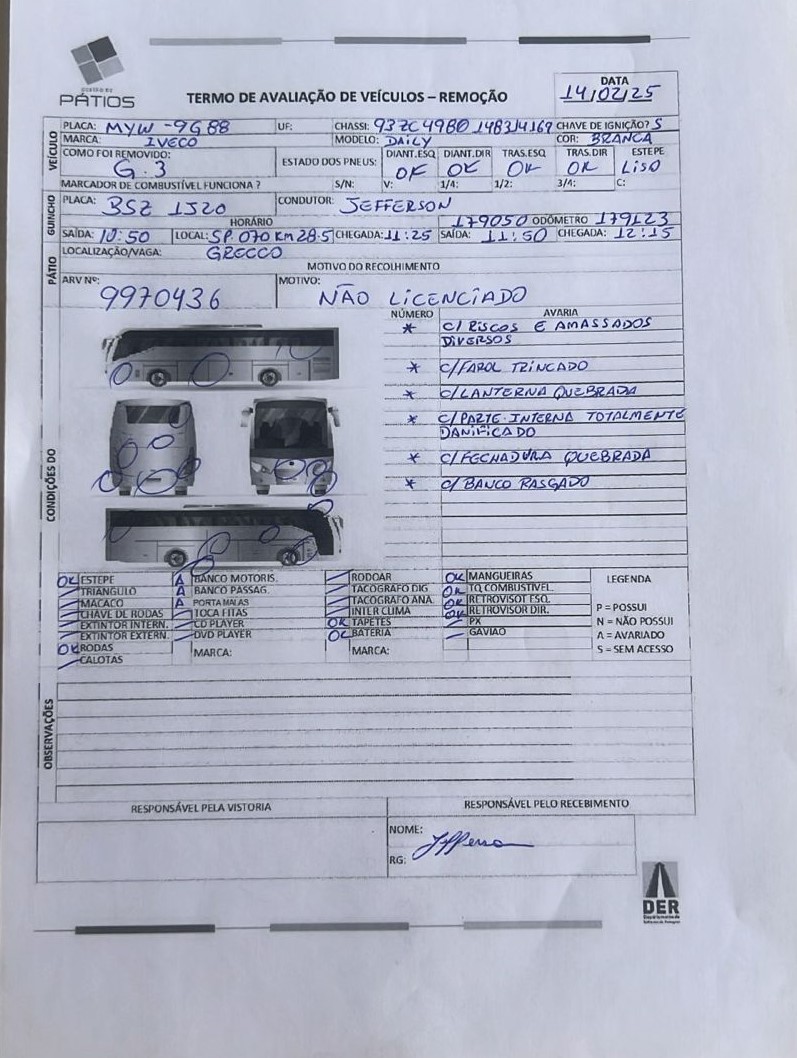 PÁTIOS
TERMO DE AVALIAÇÃO DE VEÍCULOS – REMOÇÃO
DATA
14/02/25
VEÍCULO
PLACA: MYW-9G88 UF: CHASSI: 93ZC4980148314169 CHAVE DE IGNIÇÃO? S
MARCA: IVECO MODELO: DAILY COR: BRANCA
COMO FOI REMOVIDO: G.3 ESTADO DOS PNEUS: DIANT.ESQ OK DIANT.DIR OK TRAS.ESQ OK TRAS.DIR OK ESTEPE LISO
MARCADOR DE COMBUSTÍVEL FUNCIONA ? S/N: V: 1/4: 1/2: 3/4: C:
GUINCHO
PLACA: BSZ 1J20 CONDUTOR: JEFFERSON
HORÁRIO 179050 ODÔMETRO 179123
SAÍDA: 10:50 LOCAL: SP 070 KM 28.5 CHEGADA: 11:25 SAÍDA: 11:50 CHEGADA: 12:15
PÁTIO
LOCALIZAÇÃO/VAGA: GRECCO
MOTIVO DO RECOLHIMENTO
ARV Nº: 9970436 MOTIVO: NÃO LICENCIADO
CONDIÇÕES DO
NÚMERO AVARIA
* C/ RISCOS E AMASSADOS
DIVERSOS
* C/FAROL TRINCADO
* C/LANTERNA QUEBRADA
* C/PARTE INTERNA TOTALMENTE
DANIFICADO
* C/FECHADURA QUEBRADA
* C/ BANCO RASGADO
OK ESTEPE A BANCO MOTORIS. RODOAR OK MANGUEIRAS LEGENDA
TRIANGULO A BANCO PASSAG. TACOGRAFO DIG. OK TQ COMBUSTIVEL.
MACACO A PORTA MALAS TACOGRAFO ANA. OK RETROVISOT ESQ. P = POSSUI
CHAVE DE RODAS TOCA FITAS INTER CLIMA OK RETROVISOR DIR. N = NÃO POSSUI
EXTINTOR INTERN. CD PLAYER OK TAPETES PX A = AVARIADO
EXTINTOR EXTERN. DVD PLAYER OK BATERIA GAVIAO S = SEM ACESSO
OK RODAS MARCA: MARCA:
CALOTAS
OBSERVAÇÕES
RESPONSÁVEL PELA VISTORIA RESPONSÁVEL PELO RECEBIMENTO
NOME: Jefferson
RG:
DER